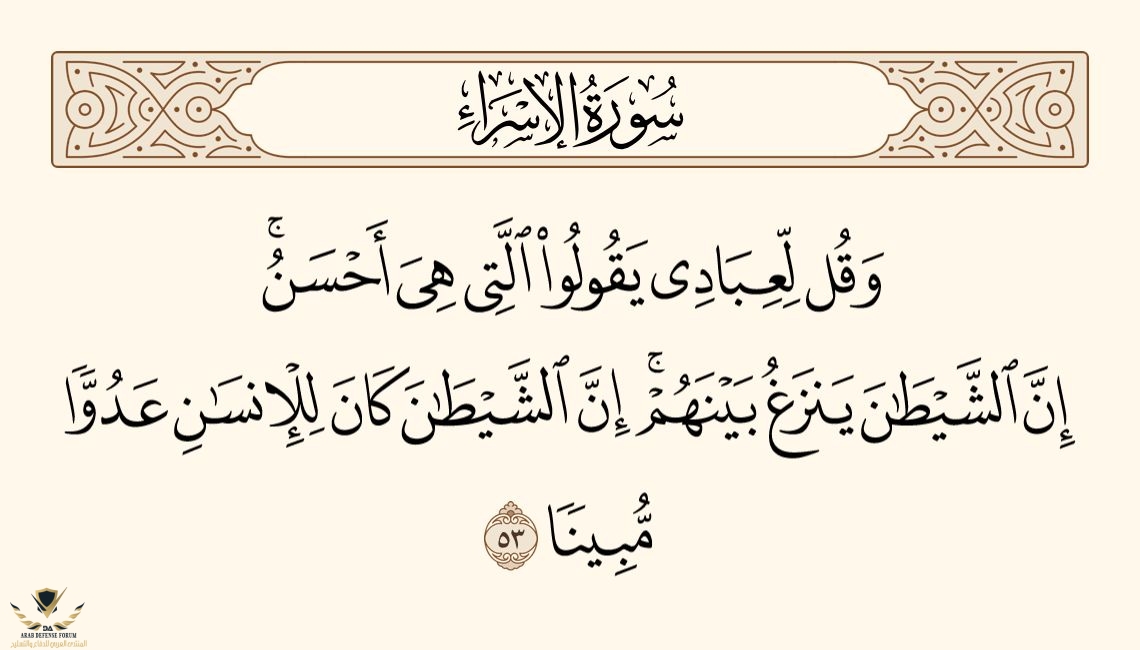 سُورَةُ الإِسۡرَاءِ
وَقُل لِّعِبَادِى يَقُولُوا۟ ٱلَّتِى هِىَ أَحۡسَنُۚ
إِنَّ ٱلشَّيۡطَٰنَ يَنزَغُ بَيۡنَهُمۡۚ إِنَّ ٱلشَّيۡطَٰنَ كَانَ لِلۡإِنسَٰنِ عَدُوًّا
مُّبِينًا ٥٣
DA
ARAB DEFENSE FORUM
المنتدى العربي للدفاع والتسليح